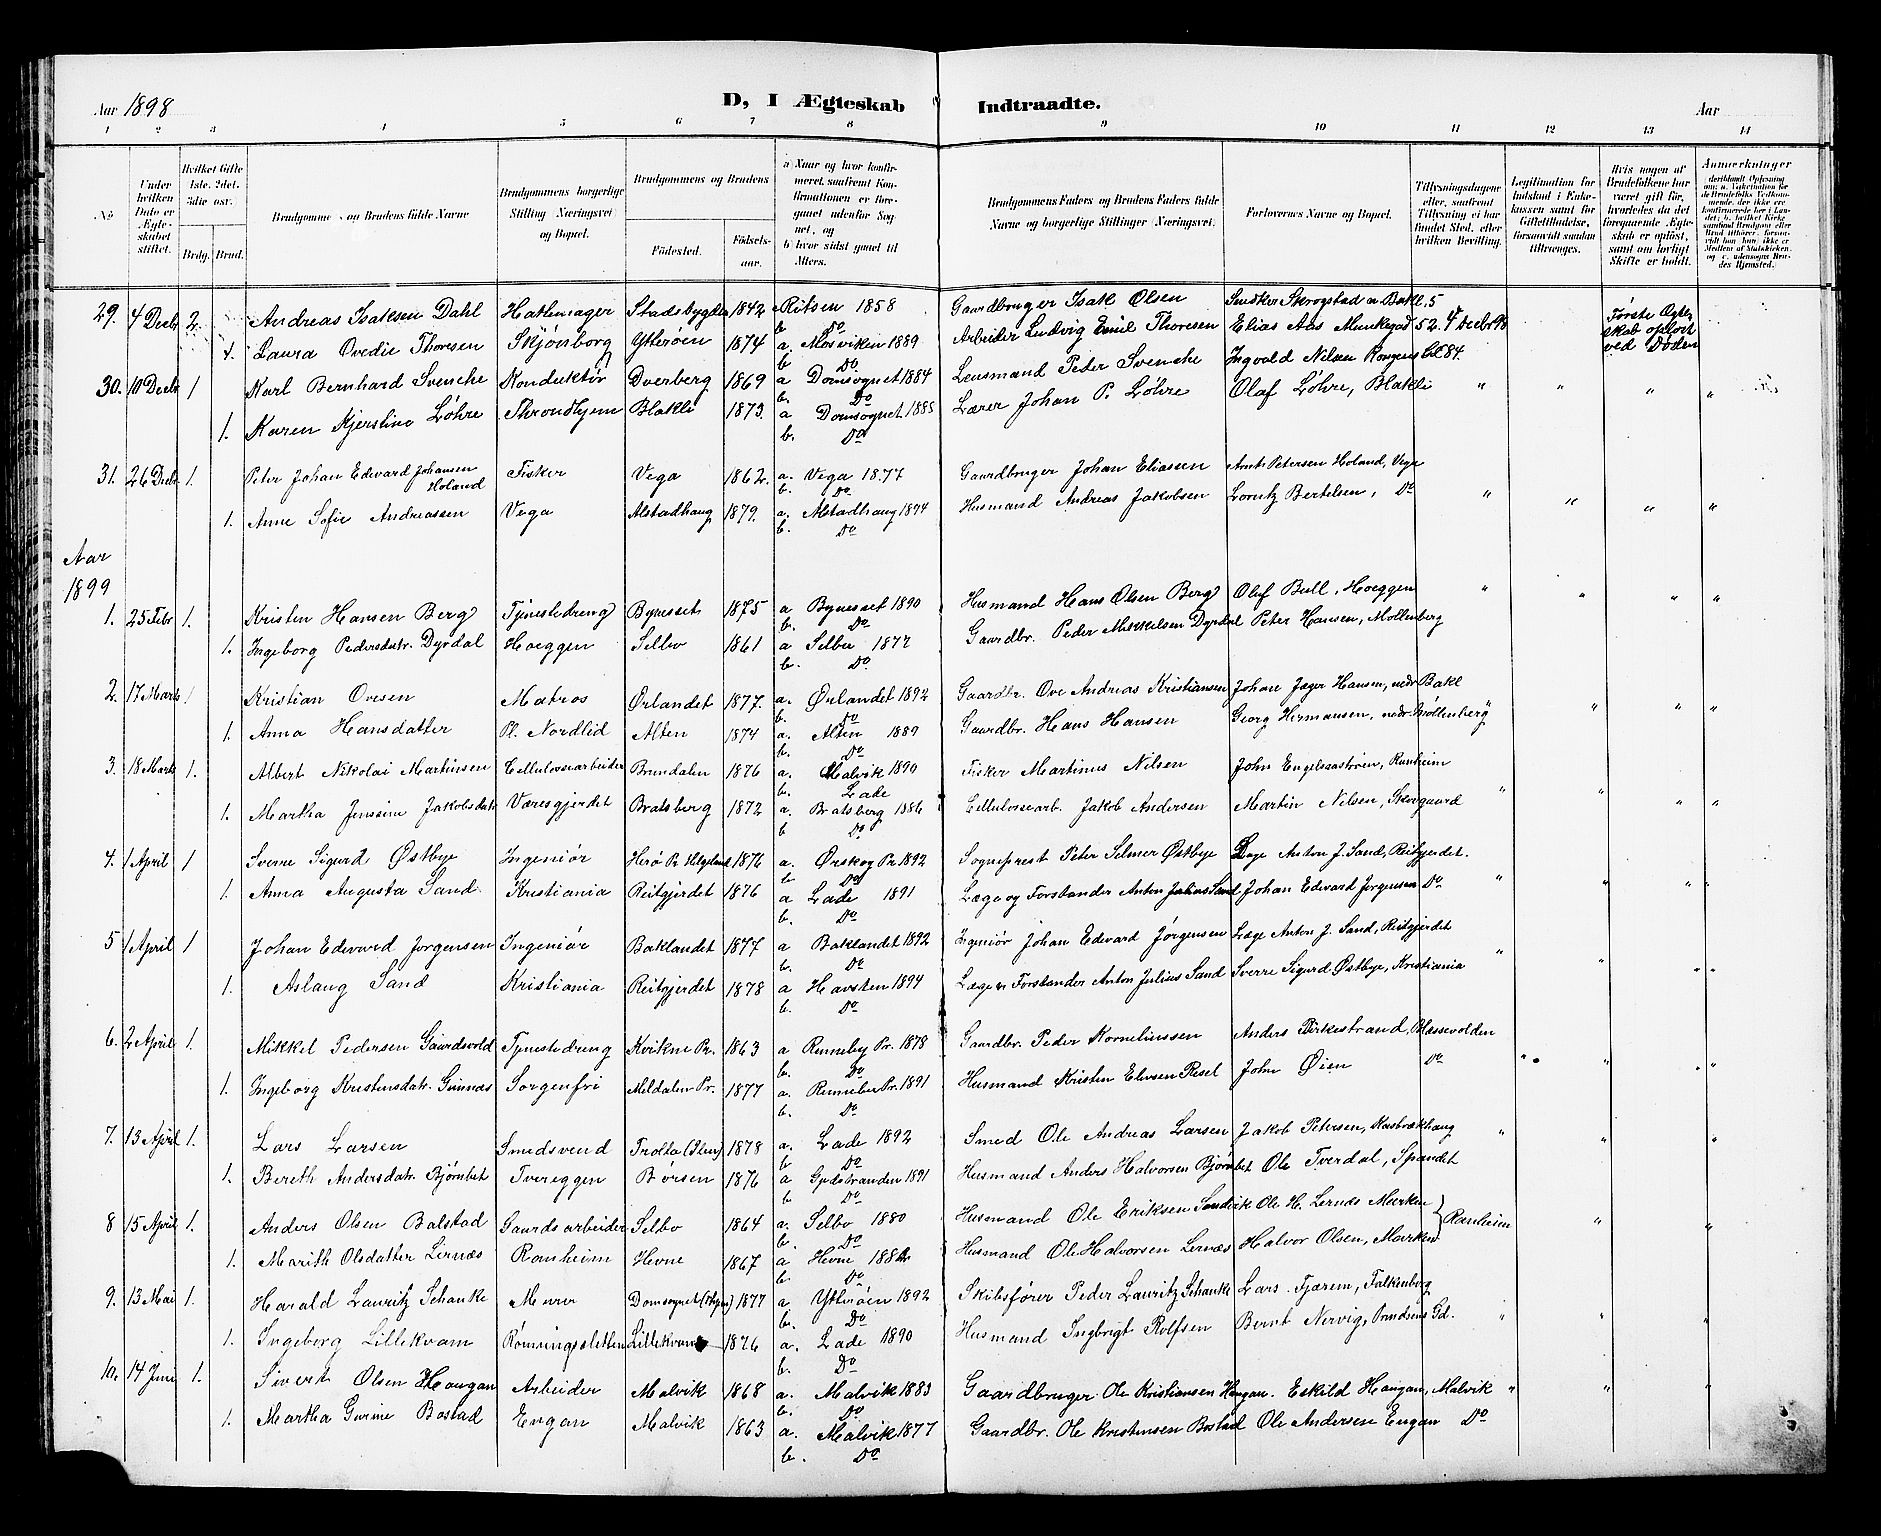 Aar 1898
D, I Ægteskab Indtraadte.
Aar
1 2 3 4 5 6 7 8 9 10 11 12 13 14
No
Under hvilken Dato er Ægteskabet stiftet.
Hvilket Gifte 1ste, 2det, 3die osv.
Brdg. Brud.
Brudgommens og Brudens fulde Navne
Brudgommens borgerlige Stilling (Næringsvei) og Bopæl.
Brudgommens og Brudens
Fødested. Fødselsaar.
a) Naar og hvor konfirmeret, saafremt Konfirmationen er foregaaet udenfor Sognet, og
b) hvor sidst gaaet til Alters.
Brudgommens Faders og Brudens Faders fulde Navne og borgerlige Stillinger (Næringsvei).
Forlovernes Navne og Bopæl.
Tillysningsdagene eller, saafremt Tillysning ei har fundet Sted, efter hvilken Bevilling.
Legitimation for Indskud i Enkekassen samt for Giftetilladelse, forsaavidt saadan tiltrænges.
Hvis nogen af Brudefolkene har været gift før, hvorledes da det foregaaende Ægteskab er opløst, samt om lovligt Skifte er holdt.
Anmerkninger
29. 4 Decbr 2. Andreas Isaksen Dahl Hattemager Stadsbygden 1842 Ritsen 1858 Gaardbruger Isak Olsen Snedker Skrogstad n Bakl. 5 Første Ægteskab opløst ved Døden
b. Do
1. Laura Ovedie Thoresen Skjønborg Ytterøen 1874 a. Mosviken 1889 Arbeider Ludvig Emil Thoresen Elias Aas Munkegad 52. 4 Decbr 98
b Do
30. 10 Decbr 1 Karl Bernhard Svenche Konduktør Dverberg 1869 a Domsognet 1884 Lensmand Peder Svenche Ingvold Nilsen Kongens Gd 84.
b. Do
1. Karen Kjerstine Løhre Throndhjem Blakli 1873. a Domsognet 1885 Lærer Johan P. Løhre Olaf Løhre, Blakli " " " "
b. Do
31. 26 Decbr 1. Peter Johan Edvard Johansen Holand Fisker Vega 1862. a. Vega 1877 Gaardbruger Johan Eliassen Petersen Holand, Vega
b. Do
1. Anne Sofie Andreassen Vega Alstadhaug 1879. a. Alstadhaug 1894 Husmand Andreas Jakobsen Lorntz Bertelsen, Do " " " "
b. Do
Aar
1899
1. 25 Febr 1. Kristen Hansen Berg Tjenestedreng Bynesset 1875 a Bynesset 1890 Husmand Hans Olsen Berg Oluf Bull, Hoeggen " " " "
b. Do
1. Ingeborg Pedersdatr. Dyrdal Hoeggen Selbo 1861 a Selbu 1877 Gaardbr. Peder Mikkelsen Dyrdal Peter Hansen, Mollenberg
b. Do
2. 17 Marts 1 Kristian Ovesen Matros Ørlandet 1877. a. Ørlandet 1892 Gaardbr. Ove Andreas Kristiansen Johan Jæger Hansen, nedr. Bakl
b. Do
1. Anna Hansdatter Pl. Nordlid Alten 1874 a. Alten 1889 Gaardbr. Hans Hansen Georg Hermansen, nedr. Mollenberg " " " "
b. Do
3. 18 Marts 1. Albert Nikolai Martinsen Cellulosearbeider Brundalen 1876 a. Malvik 1890 Fisker Martinus Nilsen John Engelsaastrøen, Ranheim
b. Lade
1. Martha Jenssine Jakobsdatr Væresgjerdet Bratsberg 1872 a. Bratsberg 1886 Cellulosearb. Jakob Andersen Martin Nilsen, Skovgaard " " " "
b Do
4. 1 April 1 Sverre Sigurd Østbye Ingeniør Herø Pr. Helgeland 1876 a. Ørskog Pr. 1892 Sogneprest Peter Selmer Østbye Læge Anton J. Sand, Reitgjerdet.
b Do
1. Anna Augusta Sand Kristiania Reitgjerdet 1876 a Lade 1891 Læge og Forstander Anton Julius Sand Johan Edvard Jørgensen Do " " " "
b. Do
5 1 April 1 Johan Edvard Jørgensen Ingeniør Baklandet 1877 a Baklandet 1892 Ingeniør Johan Edvard Jørgensen Læge Anton J. Sand, Reitgjerdet
b. Do
1. Aslaug Sand Kristiania Reitgjerdet 1878 a Havsten 1894 Læge og Forstander Anton Julius Sand Sverre Sigurd Østbye, Kristiania " " " "
b. Do
6. 2 April 1. Mikkel Pedersen Gaardsvold Tjenestedreng Kvikne Pr. 1863 a Rennebu Pr. 1878 Gaardbr. Peder Korneliussen Anders Birkestrand, Blæssevolden
b. Do
1. Ingeborg Kristensdatr. Grinnæs Sorgenfri Meldalen Pr. 1877 a. Rennebu Pr. 1891 Husmand Kristen Elivsen Resel John Øien Do " " " "
b. Do
7. 13 April 1. Lars Larsen Smedsvend Trolla (Ilen) 1878 a. Lade 1892 Smed Ole Andreas Larsen Jakob Petersen, " " "
b Do
1. Bereth Andersdatr. Bjørnbet Tvereggen Børsen 1876 a Gjedstranden 1891 Husmand Anders Halvorsen Bjørnbet Ole Tverdal, Spandet
b Do
8 15 April 1. Anders Olsen Balstad Gaardsarbeider Selbo 1864 a. Selbo 1880 Husmand Ole Eriksen Sandvik Ole H. Lernæs Marken } Ranheim
b. Do
1. Marith Olsdatter Lernæs Ranheim Hevne 1867 a Hevne 1882 Husmand Ole Halvorsen Lernæs Halvor Olsen, Marken " "
b. Do
9. 13 Mai 1. Harald Lauritz Schanke Murer Domsognet (Thjem) 1877 a. Ytterøen 1892 Skibsfører Peder Lauritz Schanke Lars Fjærem, Falkenberg
b. Do
1. Ingeborg Lillekvam Rønningsletten Lillekvam 1876 a. Lade 1890 Husmand Ingbrigt Rolfsen Bernt Nervig, Gd. " " "
b. Do
10. 14 Juni 1. Sivert Olsen Haugan Arbeider Malvik 1868 a. Malvik 1883 Gaardbruger Ole Kristiansen Haugan. Eskild Haugan, Malvik " " "
b. Do
1. Martha Gurine Bostad Engan Malvik 1863 a. Malvik 1877 Gaardbr. Ole Kristensen Bostad Ole Andersen Engan Do
b. Do